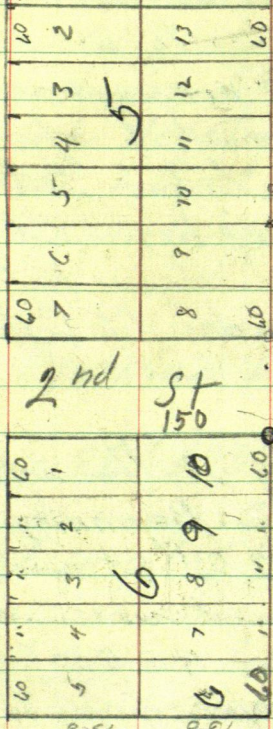 60 2 13 60
3 12
5
4 11
5 10
6 9
60 7 8 60
2nd St
150
60 1 10 60
" 2 9 "
" 3 8 "
6
" 4 7 "
60 5 6 60